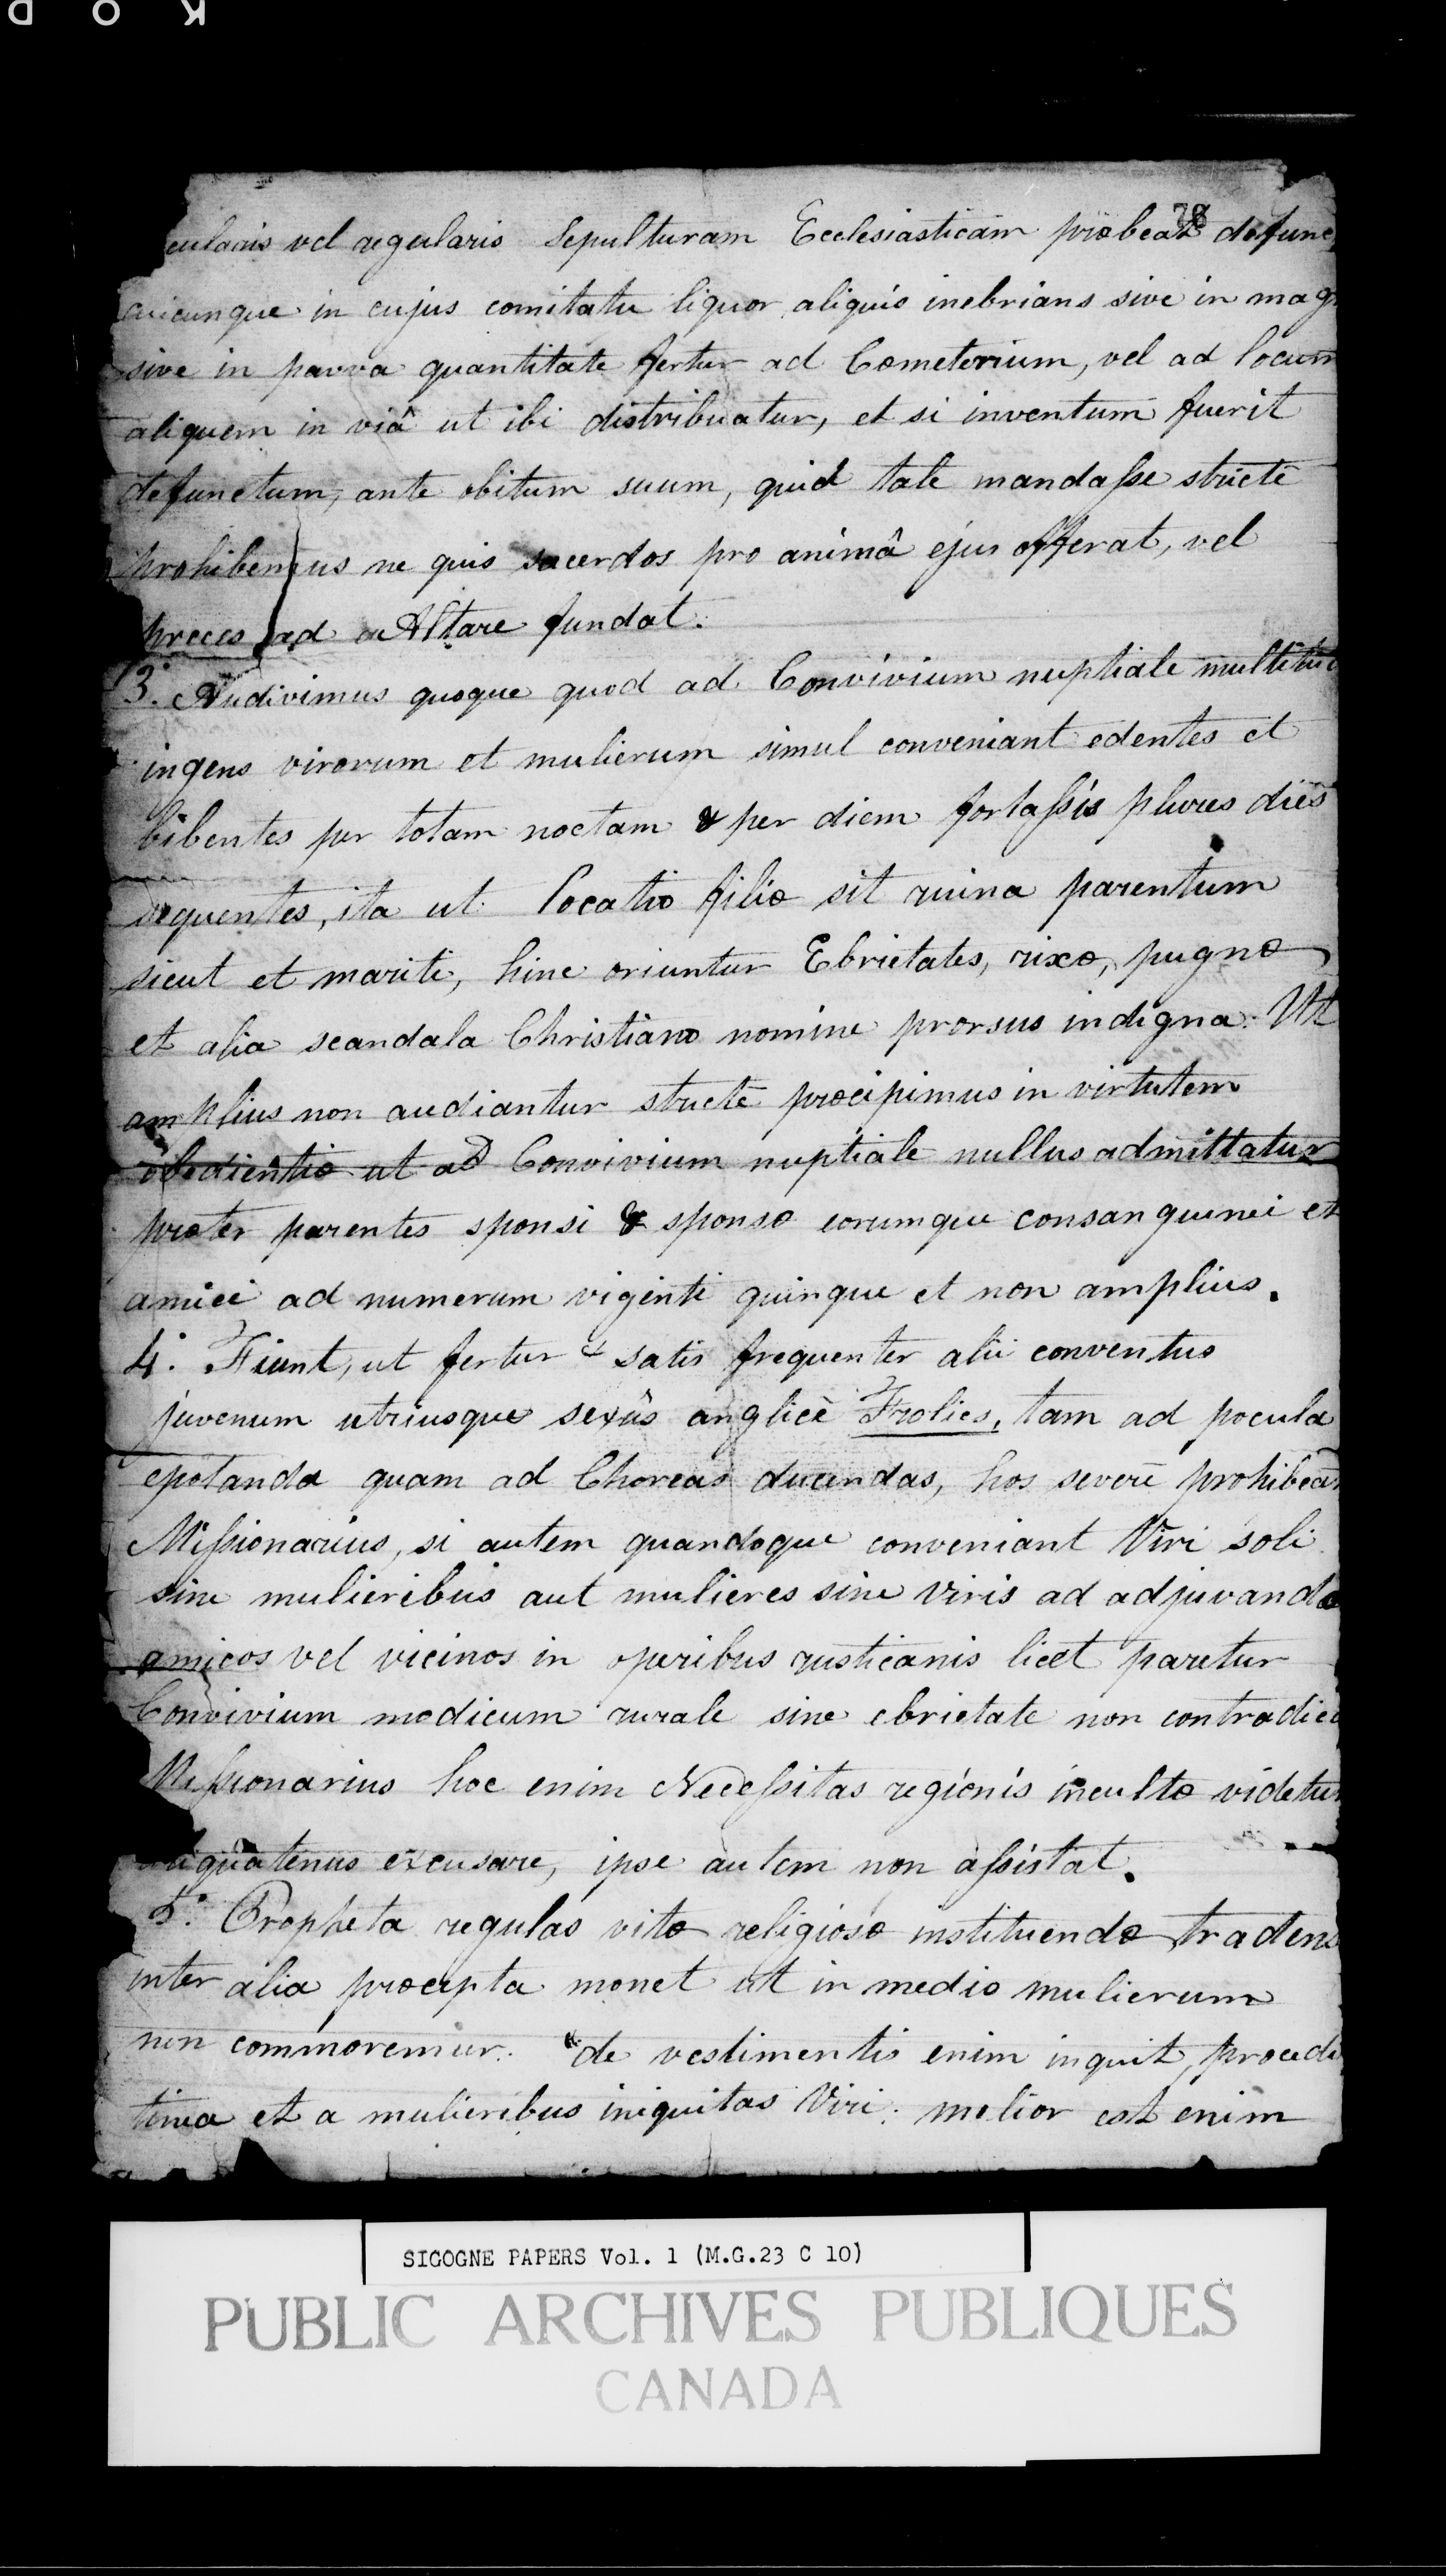 K O D
78
cularis vel regularis Sepulturam Ecclesiasticam præbeat defunc
cuicunque in cujus comitatu liquor aliquis inebrians sive in mag
sive in parva quantitate fertur ad Cœmeterium, vel ad locum
aliquem in viâ ut ibi distribuatur, et si inventum fuerit
defunctum, ante obitum suum, quid tale mandaſse strictè
prohibemus ne quis sacerdos pro animâ ejus offerat, vel
preces ad Altare fundat.
3.° Audivimus quoque quod ad Convivium nuptiale multitu
ingens virorum et mulierum simul conveniant edentes et
bibentes per totam noctam & per diem fortaſsis plures dies
sequentes, ita ut locatio filiæ sit ruina parentum
sicut et mariti, hinc oriuntur Ebrietates, rixæ, pugnæ
et alia scandala Christiano nomine prorsus indigna. Ut
amplius non audiantur strictè præcipimus in virtutem
obedientiæ ut ad Convivium nuptiale nullus admittatur
præter parentes sponsi & sponsæ eorumque consanguinei et
amici ad numerum viginti quinque et non amplius.
4.° Fiunt, ut fertur & satis frequenter alii conventus
juvenum utriusque sexûs anglicè Frolics, tam ad pocula
epotanda quam ad Choreas ducendas, hos severè prohibea
Miſsionarius, si autem quandoque conveniant Viri soli
sine mulieribus aut mulieres sine viris ad adjuvando
amicos vel vicinos in operibus rusticanis licet paretur
Convivium modicum rurale sine ebrietate non contradic
Miſsionarius hoc enim Neceſsitas regionis incultæ videtur
aliquatenus excusare, ipse autem non aſsistat.
5.° Propheta regulas vitæ religiosæ instituendæ tradens
inter alia præcepta monet ut in medio mulierum
non commoremur. "de vestimentis enim inquit, procedi
tinea et a mulieribus iniquitas Viri: melior est enim
SIGOGNE PAPERS Vol. 1 (M.G.23 C 10)
PUBLIC ARCHIVES PUBLIQUES
CANADA